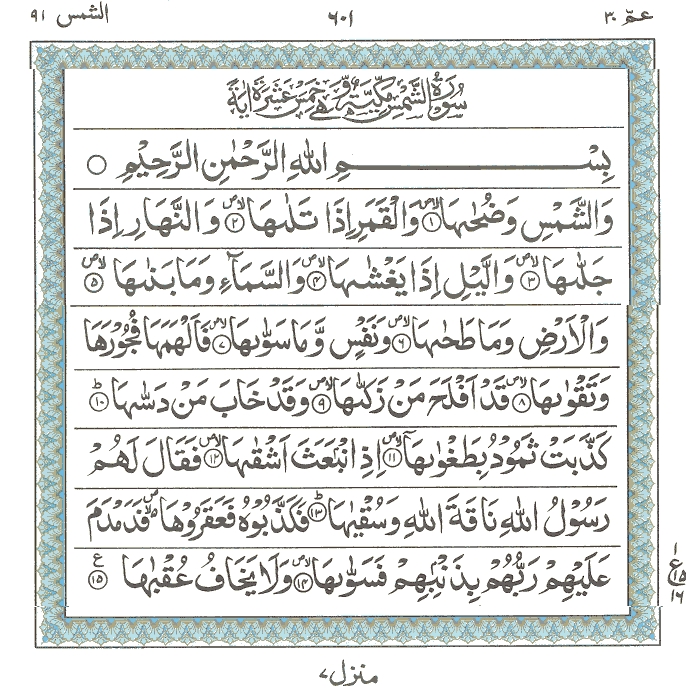 عمّ ۳۰ ۶۰۱ الشمس ۹۱
سُوْرَةُ الشَّمْسِ مَكِّيَّةٌ وَّهِيَ خَمْسَ عَشْرَةَ اٰيَةً
بِسْمِ اللهِ الرَّحْمٰنِ الرَّحِيْمِ ○
وَالشَّمْسِ وَضُحٰىهَا ۙ﴿۱﴾ وَالْقَمَرِ اِذَا تَلٰىهَا ۙ﴿۲﴾ وَالنَّهَارِ اِذَا
جَلّٰىهَا ۙ﴿۳﴾ وَالَّيْلِ اِذَا يَغْشٰىهَا ۙ﴿۴﴾ وَالسَّمَآءِ وَمَا بَنٰىهَا ۙ﴿۵﴾
وَالْاَرْضِ وَمَا طَحٰىهَا ۙ﴿۶﴾ وَنَفْسٍ وَّمَا سَوّٰىهَا ۙ﴿۷﴾ فَاَلْهَمَهَا فُجُوْرَهَا
وَتَقْوٰىهَا ۙ﴿۸﴾ قَدْ اَفْلَحَ مَنْ زَكّٰىهَا ۙ﴿۹﴾ وَقَدْ خَابَ مَنْ دَسّٰىهَا ؕ﴿۱۰﴾
كَذَّبَتْ ثَمُوْدُ بِطَغْوٰىهَاۤ ۙ﴿۱۱﴾ اِذِ انْۢبَعَثَ اَشْقٰىهَا ۙ﴿۱۲﴾ فَقَالَ لَهُمْ
رَسُوْلُ اللهِ نَاقَةَ اللهِ وَسُقْيٰهَا ؕ﴿۱۳﴾ فَكَذَّبُوْهُ فَعَقَرُوْهَا ۪ۙ فَدَمْدَمَ
عَلَيْهِمْ رَبُّهُمْ بِذَنْۢبِهِمْ فَسَوّٰىهَا ۙ﴿۱۴﴾ وَلَا يَخَافُ عُقْبٰهَا ﴿۱۵﴾ ع
۱
ع ۱۵
۱۶
منزل ۷